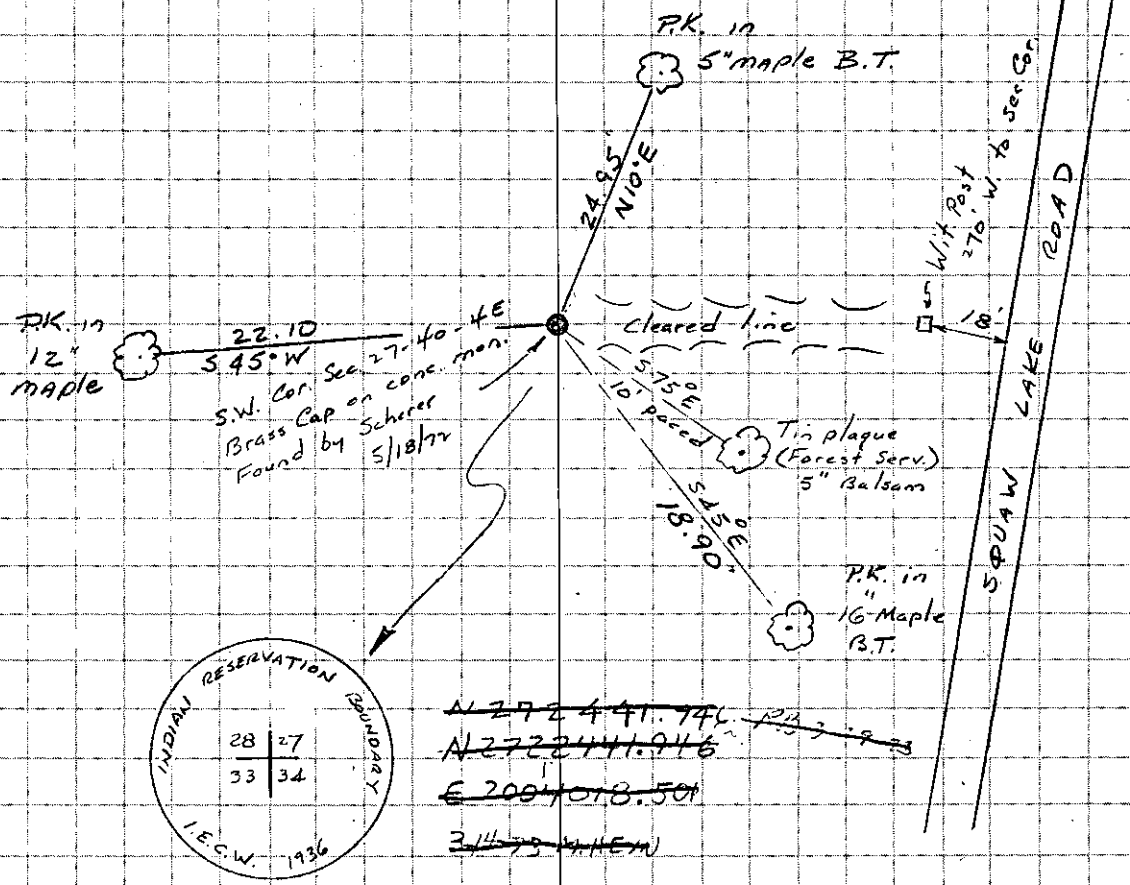 P.K. in
5" maple B.T.
24.95'
N10°E
Wit. Post
270' W. to Sec. Cor.
18'
SQUAW LAKE ROAD
Cleared line
P.K. in
12"
maple
22.10
S 45° W
S.W. Cor. Sec. 27-40-4E
Brass Cap on conc. mon.
Found by Scherer
5/18/72
S 75° E
10' paced
Tin plaque
(Forest Serv.)
5" Balsam
S 45° E
18.90'
P.K. in
16" Maple
B.T.
INDIAN RESERVATION BOUNDARY
28 27
33 34
I.E.C.W. 1936
N 272441.946
N2722441.946
E 2004018.501